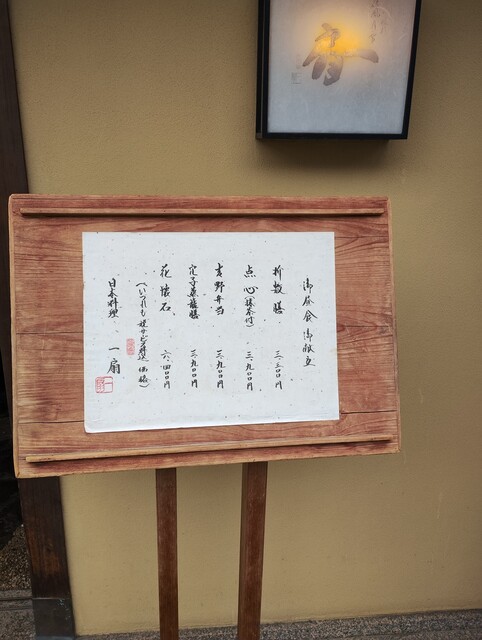 御昼食御献立
折敷膳 三、三〇〇円
点心(抹茶付) 三、九〇〇円
吉野弁当 三、九〇〇円
三、九〇〇円
花懐石 六、四〇〇円
(いづれも税サービス料込価格)
日本料理 一扇